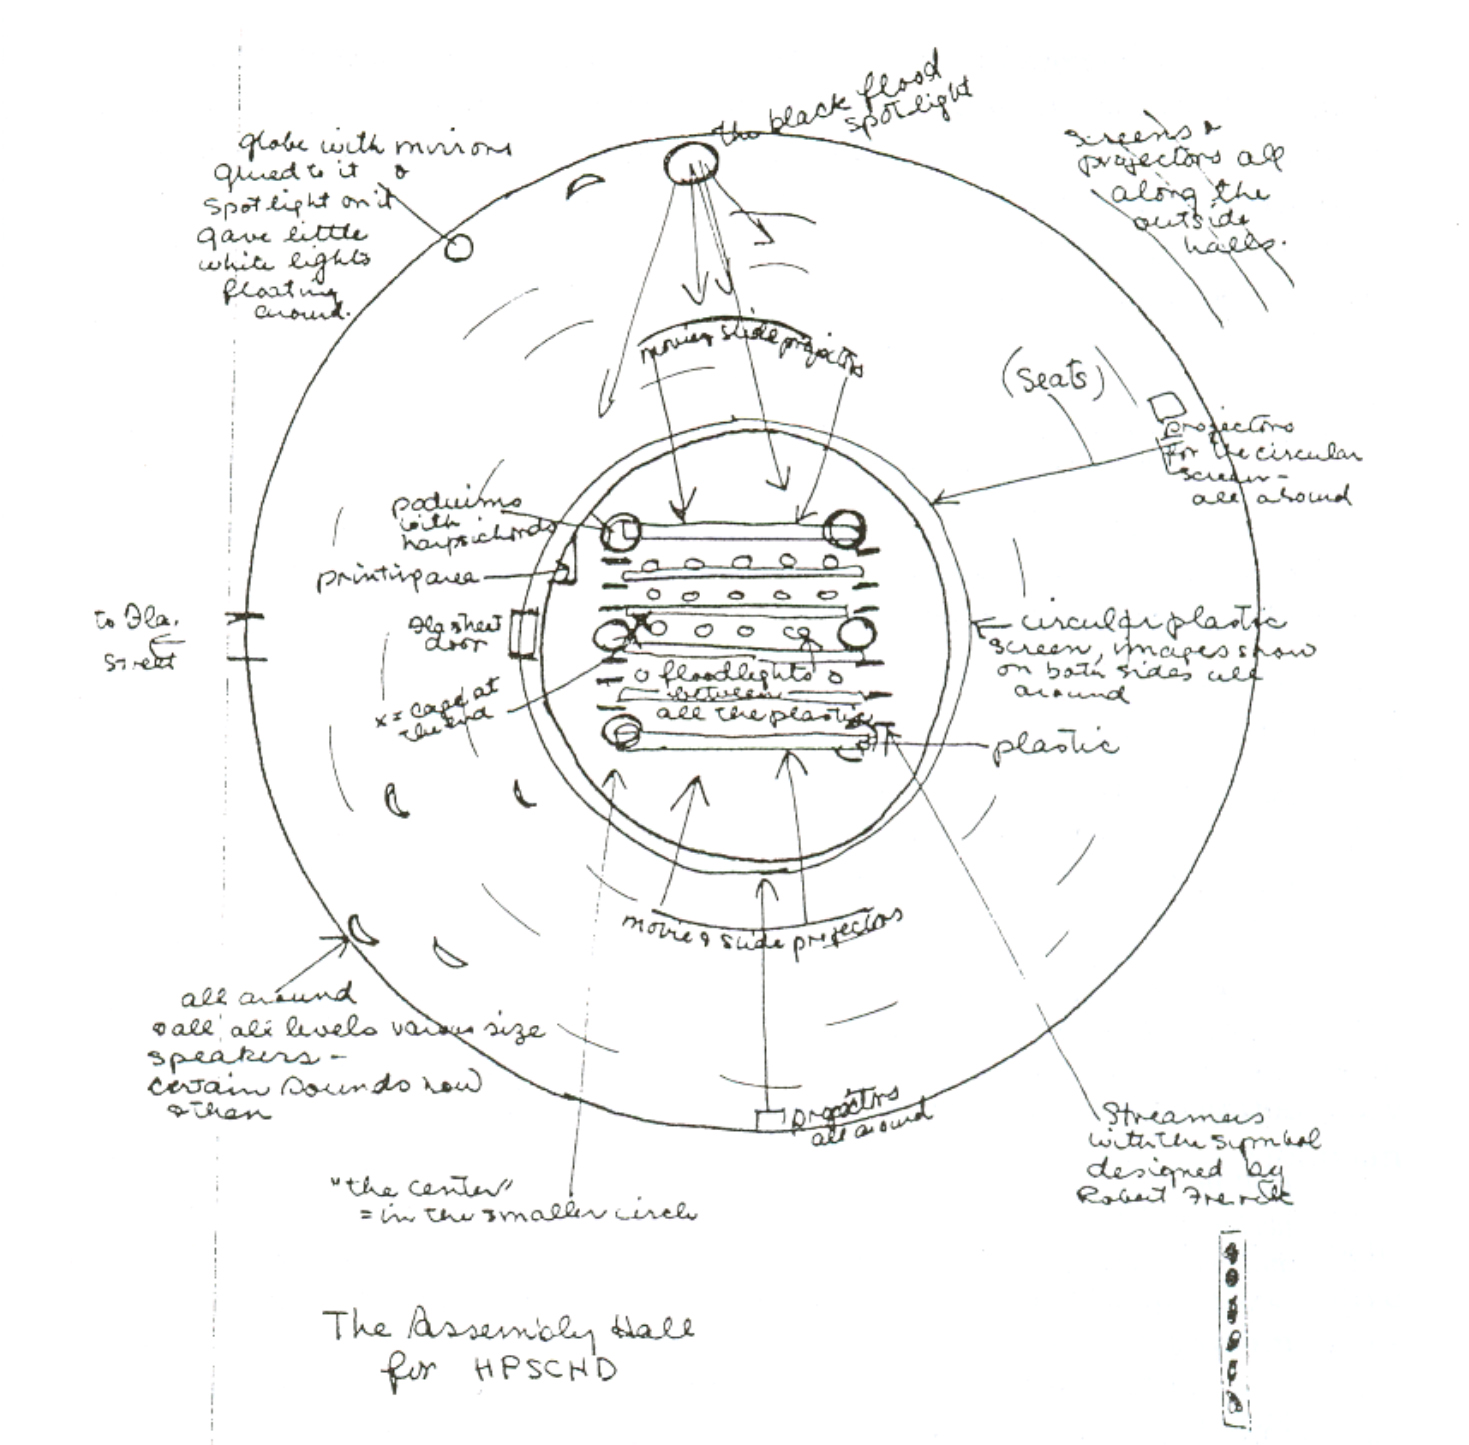 the black flood
spotlight
globe with mirrors
glued to it &
spotlight on it
gave little
white lights
floating
around.
screens &
projectors all
along the
outside
halls.
movie & slide projectors
(seats)
projectors
for the circular
screen –
all around
poduims
with
harpsichords
printing area
to Fla.
street
Fla street
door
x = cage at
the end
circular plastic
screen, images show
on both sides all
around
floodlights
between
all the plastic
plastic
movie & slide projectors
all around
& all at levels various size
speakers –
certain sounds now
& then
projectors
all around
Streamers
with the symbol
designed by
Robert
"the center"
= in the smaller circle
The Assembly Hall
for HPSCHD